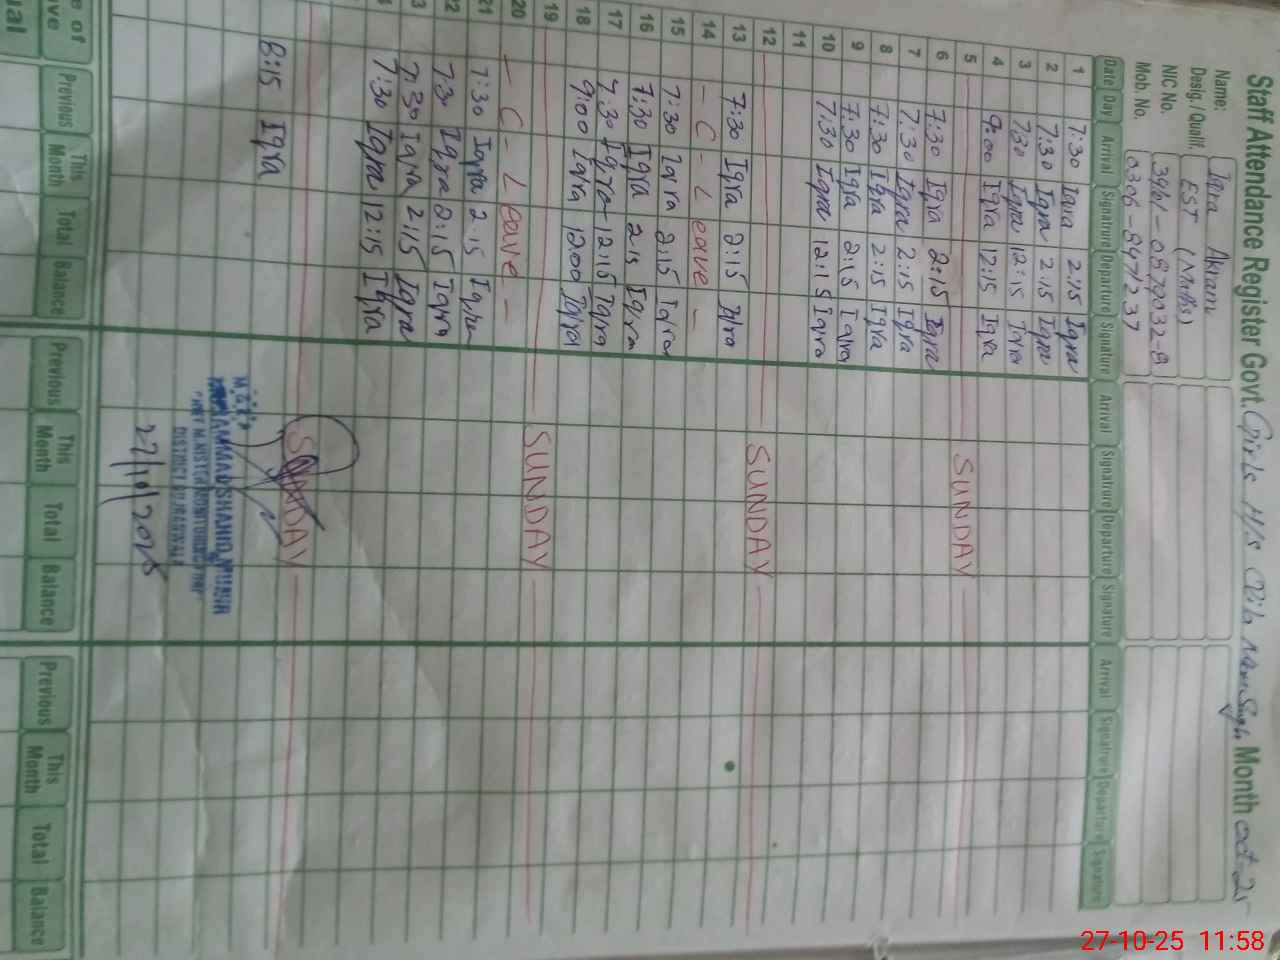 Staff Attendance Register Govt. Girls H/S Qila Nau Singh Month oct-25
Name: Iqra Akram
Desig./Qualif. EST (Maths)
NIC No.
Mob. No. 0306-8471237
Date Day Arrival Signature Departure Signature Arrival Signature Departure Signature Arrival Signature Departure Signature
1 7:30 Iqra 2:15 Iqra
2 7:30 Iqra 2:15 Iqra
3 7:30 Iqra 12:15 Iqra
4 9:00 Iqra 12:15 Iqra
5 SUNDAY
6 7:30 Iqra 2:15 Iqra
7 7:30 Iqra 2:15 Iqra
8 7:30 Iqra 2:15 Iqra
9 7:30 Iqra 2:15 Iqra
10 7:30 Iqra 12:15 Iqra
11
12 SUNDAY
13 7:30 Iqra 2:15 Iqra
14 - C - Leave -
15 7:30 Iqra 2:15 Iqra
16 7:30 Iqra 2:15 Iqra
17 7:30 Iqra 12:15 Iqra
18 9:00 Iqra 1200 Iqra
19 SUNDAY
20 - C - Leave -
21 7:30 Iqra 2:15 Iqra
22 7:30 Iqra 2:15 Iqra
23 7:30 Iqra 2:15 Iqra
7:30 Iqra 12:15 Iqra
SUNDAY
8:15 Iqra
MUHAMMAD SHAHID MUNIR
CHIEF MINISTER MONITORING
DISTRICT GUJRANWALA
27/10/2025
Previous This Month Total Balance Previous This Month Total Balance Previous This Month Total Balance
27-10-25 11:58